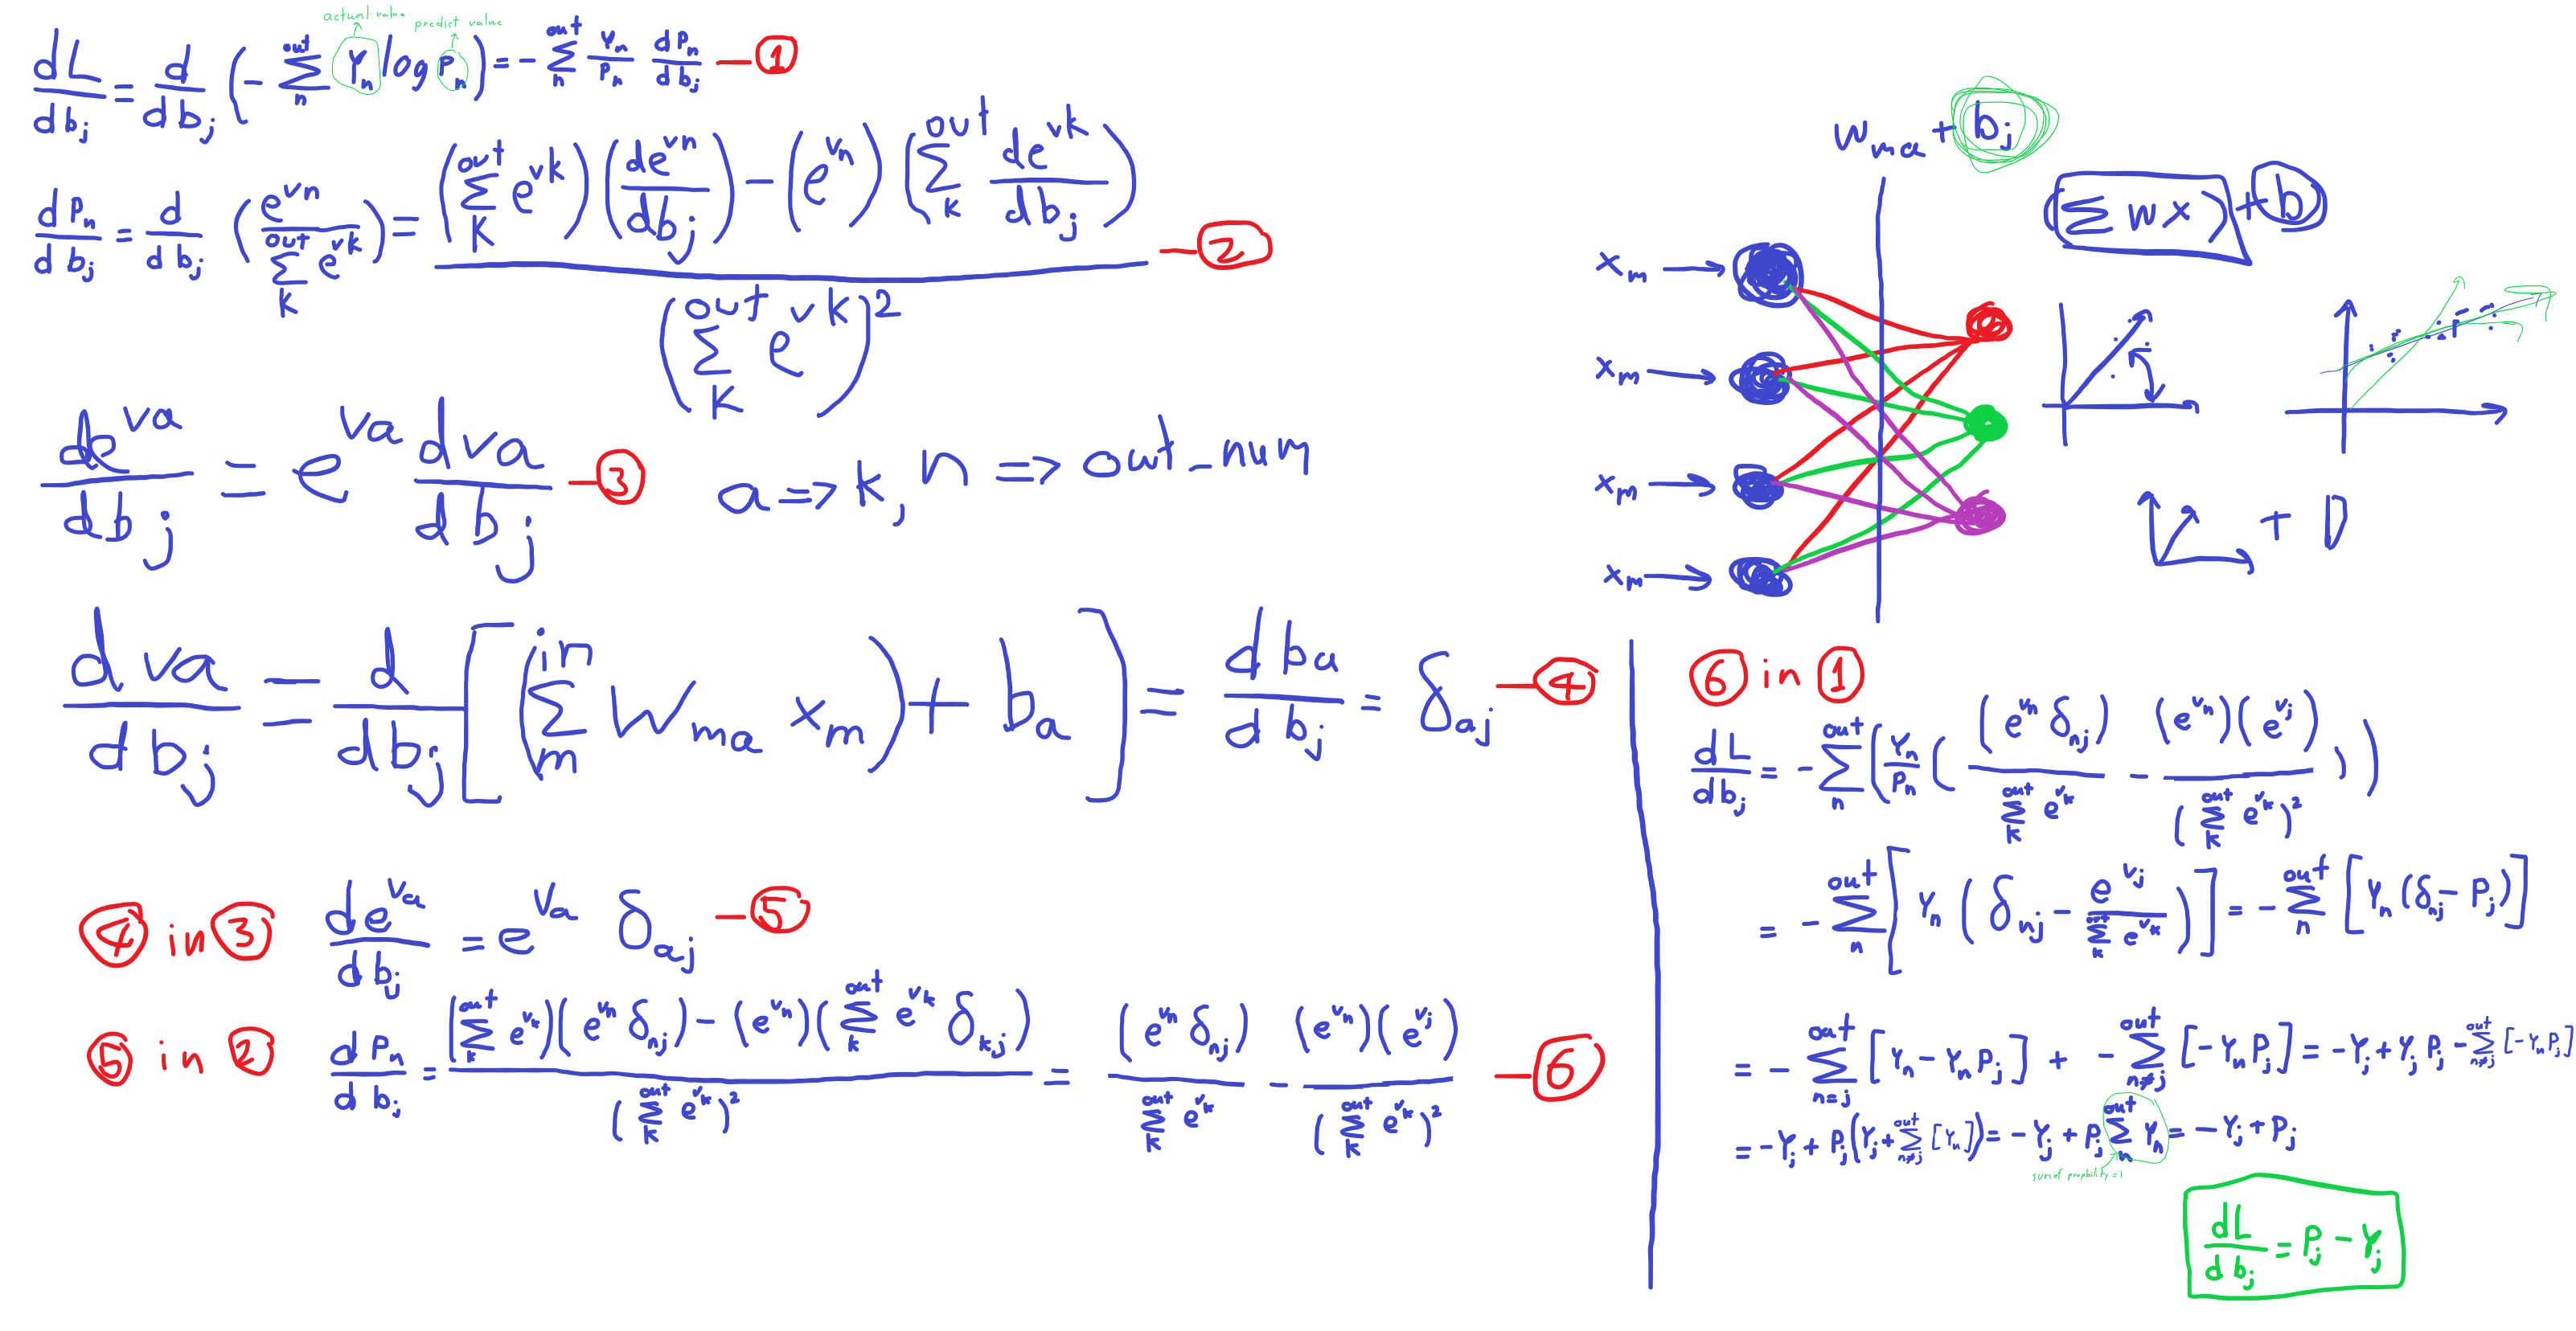 actual value
predict value
dL/db_j = d/db_j (- Σ_n^out Y_n log P_n) = - Σ_n^out Y_n/P_n dP_n/db_j —①
dP_n/db_j = d/db_j (e^{v_n} / Σ_K^out e^{vk}) = ((Σ_K^out e^{vk}) (de^{vn}/db_j) - (e^{v_n}) (Σ_K^out de^{vk}/db_j)) / (Σ_K^out e^{vk})^2 —②
de^{va}/db_j = e^{va} dva/db_j —③ a => k, n => out_num
dva/db_j = d/db_j [(Σ_m^in W_{ma} x_m) + b_a] = db_a/db_j = δ_{aj} —④
④ in ③ de^{v_a}/db_j = e^{v_a} δ_{aj} —⑤
⑤ in ② dP_n/db_j = ((Σ_k^out e^{v_k})(e^{v_n} δ_{nj}) - (e^{v_n})(Σ_k^out e^{v_k} δ_{kj})) / (Σ_k^out e^{v_k})^2 = (e^{v_n} δ_{nj}) / Σ_k^out e^{v_k} - (e^{v_n})(e^{v_j}) / (Σ_k^out e^{v_k})^2 —⑥
W_{ma} + b_j
(Σ wx) + b
x_m
x_m
x_m
x_m
+ D
⑥ in ①
dL/db_j = - Σ_n^out (Y_n/P_n ((e^{v_n} δ_{nj}) / Σ_k^out e^{v_k} - (e^{v_n})(e^{v_j}) / (Σ_k^out e^{v_k})^2))
= - Σ_n^out [Y_n (δ_{nj} - e^{v_j} / Σ_k^out e^{v_k})] = - Σ_n^out [Y_n (δ_{nj} - P_j)]
= - Σ_{n=j}^out [Y_n - Y_n P_j] + - Σ_{n≠j}^out [- Y_n P_j] = - Y_j + Y_j P_j - Σ_{n≠j}^out [- Y_n P_j]
= - Y_j + P_j (Y_j + Σ_{n≠j}^out [Y_n]) = - Y_j + P_j Σ_n^out Y_n = - Y_j + P_j
sum of propbility = 1
dL/db_j = P_j - Y_j